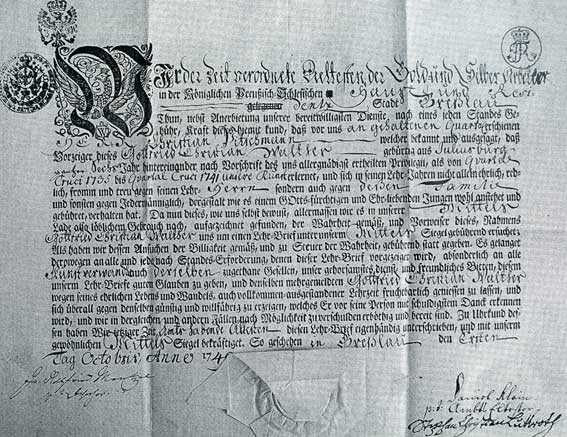 Wir der Zeit verordnete Eeltesten der Gold und Silber Arbeiter
in der Königlichen Preußisch-Schlesischen Haupt und Resi-
dentz Stadt Breßlau
Thun, nebst Anerbietung unserer bereitwilligsten Dienste, nach eines jeden Standes Ge-
bühr, Kraft dieses hiemit kund, daß vor uns an gehaltenen Quartal erschienen
HERR Christian welcher bekannt und ausgesagt, daß
Vorzeiger dieses Gottfried Christian Walther gebürtig aus Juliusburg
Sechs Jahr hintereinander nach Vorschrift des uns allergnädigst ertheilten Privilegii, als von Quartal
Crucis 1735 bis Quartal Crucis 1741 unsere Kunst erlernet, und sich in seinen Lehr-Jahren nicht allein ehrlich, red-
lich, fromm und treu gegen seinen Lehr- Herrn sondern auch gegen dessen Familie
und sonsten gegen Jedermänniglich, dergestalt wie es einem GOtts-fürchtigen und Ehr-liebenden Jungen wohl anstehet und
gebühret, verhalten hat. Da nun dieses, wie uns selbst bewust, allermassen wie es in unserer Mitteln
Lade also löblichem Gebrauch nach, aufgezeichnet gefunden, der Wahrheit gemäß, und Vorweiser dieses, Nahmens
Gottfried Christian Walther uns um einen Lehr-Brief unter unserm Mitteln Siegel gebührend ersuchet;
Als haben wir dessen Ansuchen der Billigkeit gemäß, und zu Steuer der Wahrheit, gebührend statt gegeben. Es gelanget
demnach an alle und jede nach Standes-Erforderung, denen dieser Lehr-Brief vorgezeiget wird, absonderlich an alle
Kunstverwandte derselben zugethane Gesellen, unser gehorsamstes dienst- und freundliches Bitten, diesem
unserm Lehr-Briefe guten Glauben zu geben, und denselben mehrgemeldten Gottfried Christian Walther
wegen seines ehrlichen Lebens und Wandels, auch vollkommen-ausgestandener Lehrzeit fruchtbarlich geniessen zu lassen, und
sich überall gegen denselben günstig und willfährig zu erzeigen, welches Er vor seine Person mit schuldigstem Danck erkennen
wird, und wir in dergleichen und andern Fällen nach Möglichkeit zu verschulden erböthig und bereit sind. Zu Uhrkund des-
sen haben Wir jetziger Zeit Eltesten diesen Lehr-Brief eigenhändig unterschrieben, und mit unserm
gewöhnlichen Mitteln Siegel bekräftiget. So geschehen in Breßlau den Ersten
Tag Octobris Anno 174
Daniel Klein